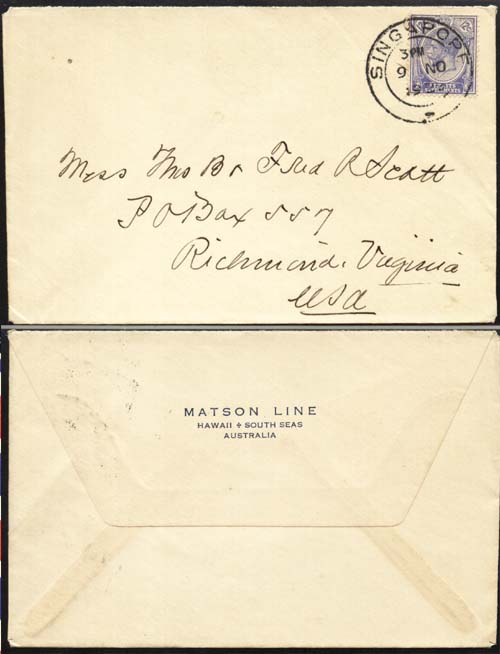 SINGAPORE
3 PM
9 NO
Mess Thos Br Fred R Scott
P O Box 557
Richmond, Virginia
USA
MATSON LINE
HAWAII & SOUTH SEAS
AUSTRALIA